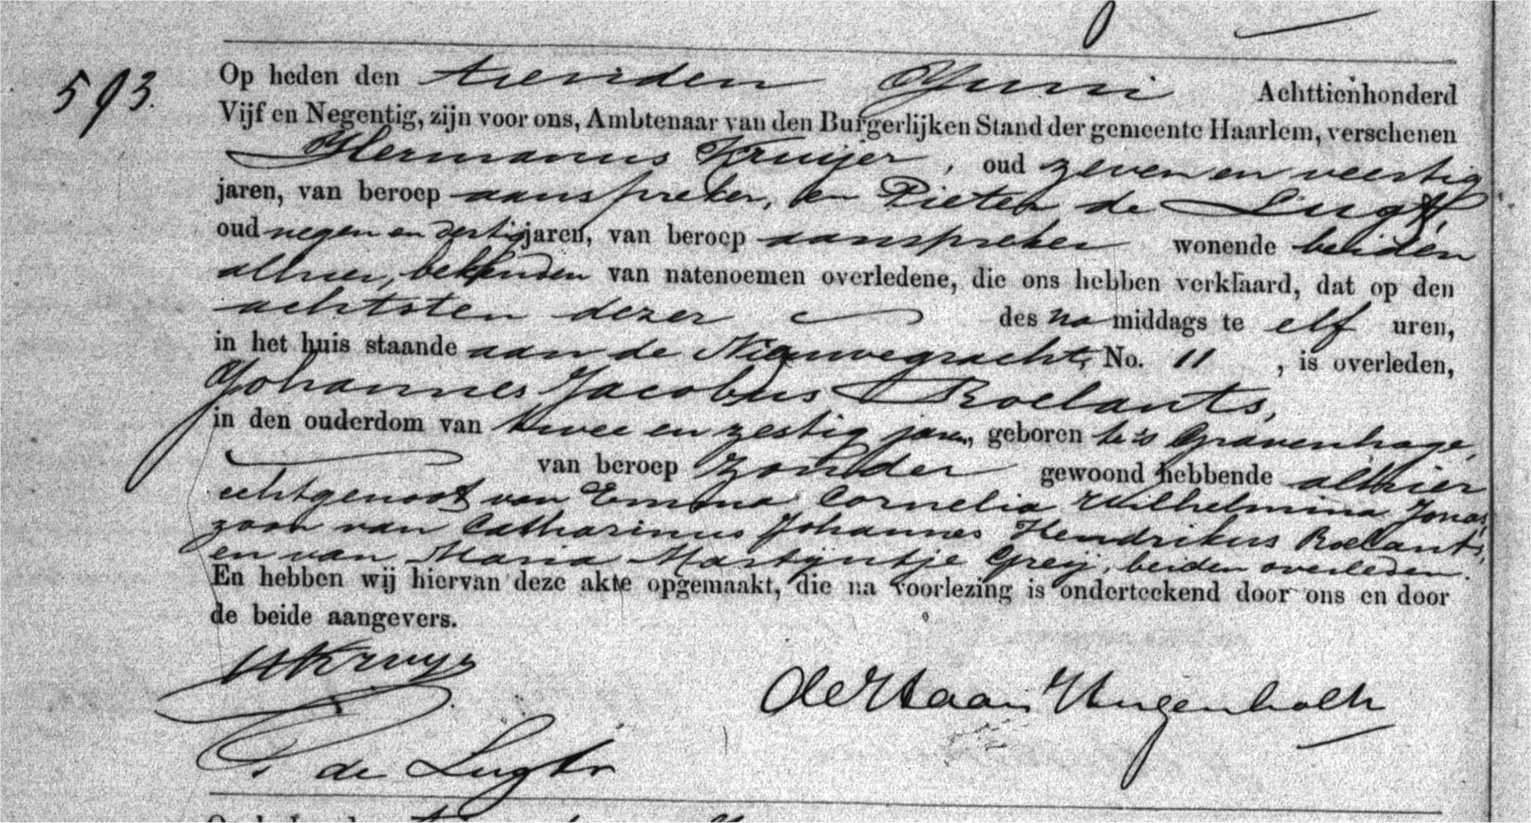 593.
Op heden den tienden Juni Achttienhonderd
Vijf en Negentig, zijn voor ons, Ambtenaar van den Burgerlijken Stand der gemeente Haarlem, verschenen
Hermanus Kruijer, oud zeven en veertig
jaren, van beroep aanspreker, en Pieter de Lugt,
oud negen en dertig jaren, van beroep aanspreker wonende beiden
alhier, bekenden van natenoemen overledene, die ons hebben verklaard, dat op den
achtsten dezer des na middags te elf uren,
in het huis staande aan de Nieuwegracht, No. 11, is overleden,
Johannes Jacobus Roelants,
in den ouderdom van twee en zestig jaren, geboren te 's Gravenhage,
van beroep zonder gewoond hebbende alhier
echtgenoot van Emma Cornelia Wilhelmina Jonas,
zoon van Catharinus Johannes Hendrikus Roelants,
en van Maria Martijntje Greij, beiden overleden.
En hebben wij hiervan deze akte opgemaakt, die na voorlezing is onderteekend door ons en door
de beide aangevers.
H Kruyer
de Haan Hugenholtz
P. de Lugt